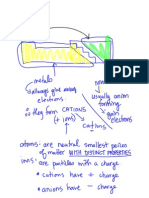 metals
always give away
electrons
they form CATIONS
(+ ions)
usually anion
forming
gain
electrons
cations
atoms: are neutral smallest pieces
of matter WITH DISTINCT PROPERTIES
ions: are particles with a charge
• cations have + charge
• anions have - charge